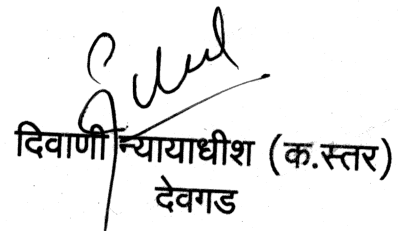 दिवाणी न्यायाधीश (क.स्तर)
देवगड